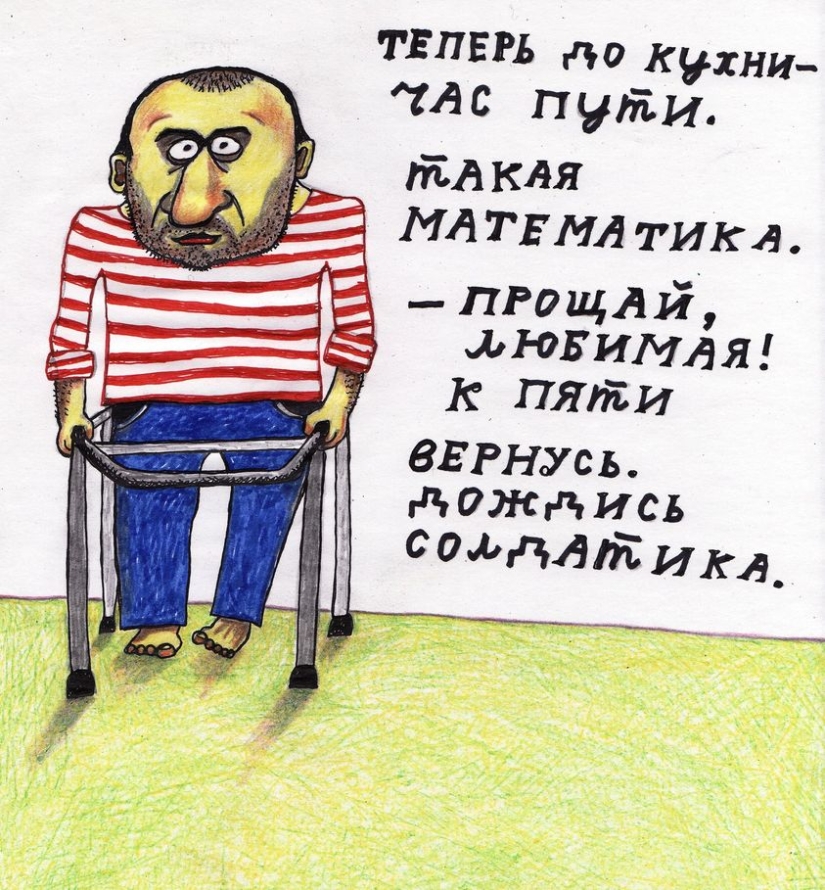 ТЕПЕРЬ ДО КУХНИ–
ЧАС ПУТИ.
ТАКАЯ
МАТЕМАТИКА.
– ПРОЩАЙ,
ЛЮБИМАЯ!
К ПЯТИ
ВЕРНУСЬ.
ДОЖДИСЬ
СОЛДАТИКА.